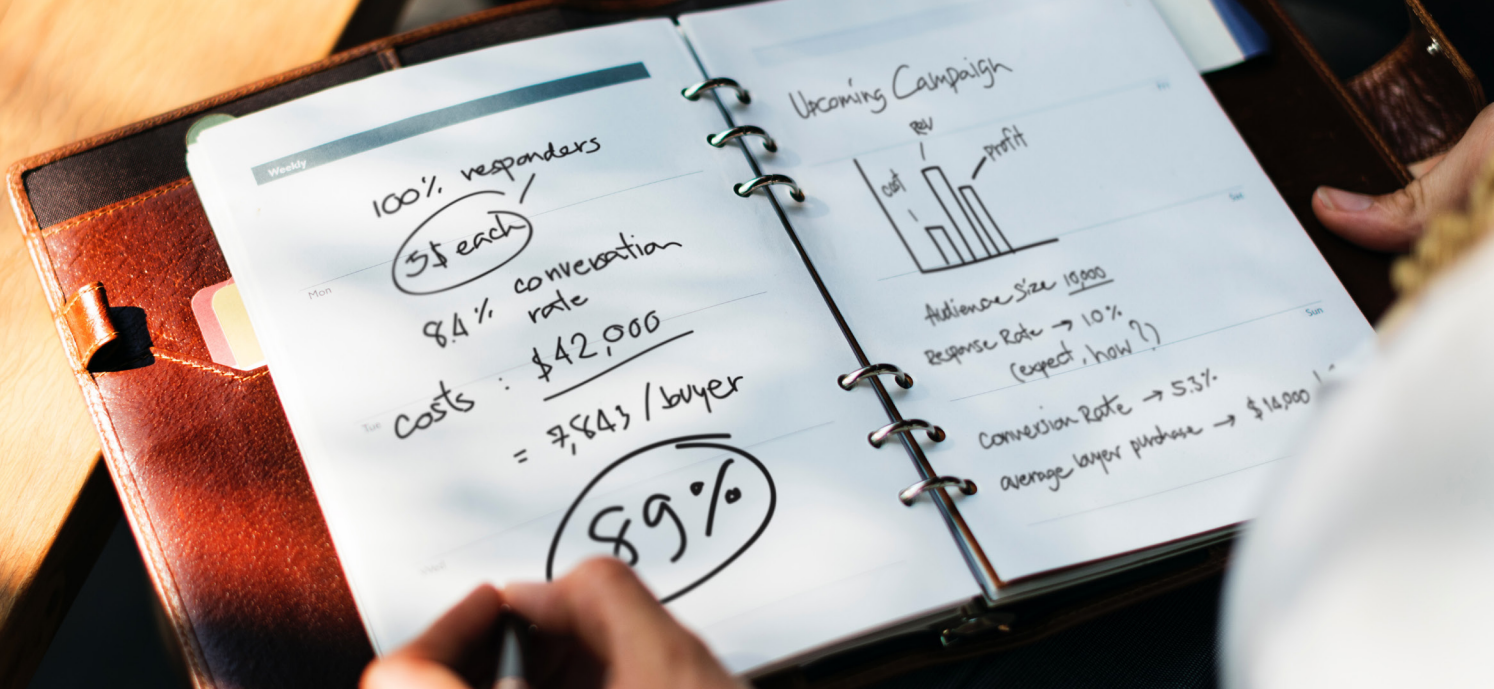 Weekly
100% responders
5$ each
8.4% conversation
rate
Mon
costs : $42,000
= 7,843 / buyer
Tue
89%
Wed
Upcoming Campaign
Fri
Rev
Profit
cost
Sat
Audience Size 10,000
Response Rate → 1.0%
(expect, how?)
Sun
Conversion Rate → 5.3%
average buyer purchase → $14,000